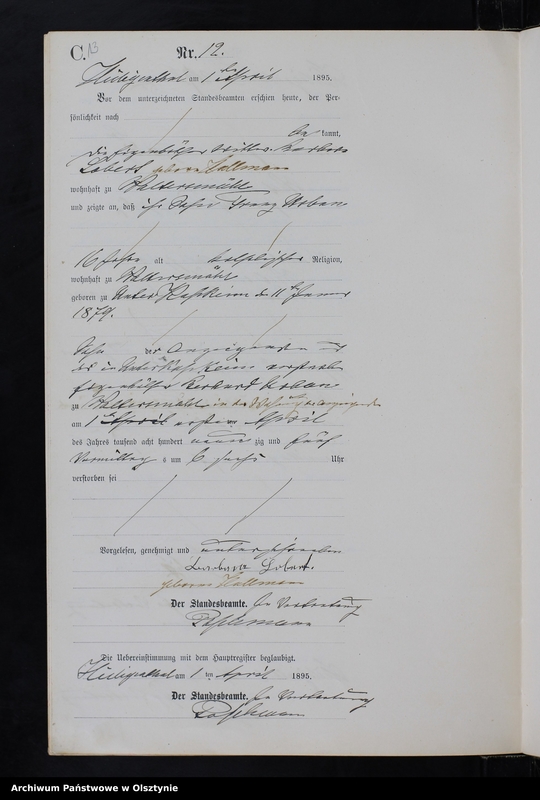 C. 13 Nr. 12.
Heiligenthal am 1 ten April 1895.
Vor dem unterzeichneten Standesbeamten erschien heute, der Per-
sönlichkeit nach
be kannt,
die Eigenkäthner Wittwe Barbara
geborne Hallmann
wohnhaft zu Waltersmühl
und zeigte an, daß ihr Sohn Franz Urban
16 Jahre alt katholischer Religion,
wohnhaft zu Waltersmühl
geboren zu Unter Kapkeim den 11 ten Januar
1879.
Sohn der Anzeigenden und
des in Unter Kapkeim verstorb
Urban
zu Waltersmühl in der Wohnung der Anzeigenden
am 1 April ersten April
des Jahres tausend acht hundert neun zig und fünf
Vormittag s um 6 sechs Uhr
verstorben sei
Vorgelesen, genehmigt und unterschrieben
Barbara
geborne Hallmann
Der Standesbeamte. In Vertretung
Die Uebereinstimmung mit dem Hauptregister beglaubigt.
Heiligenthal am 1 ten April 1895.
Der Standesbeamte. In Vertretung
Archiwum Państwowe w Olsztynie